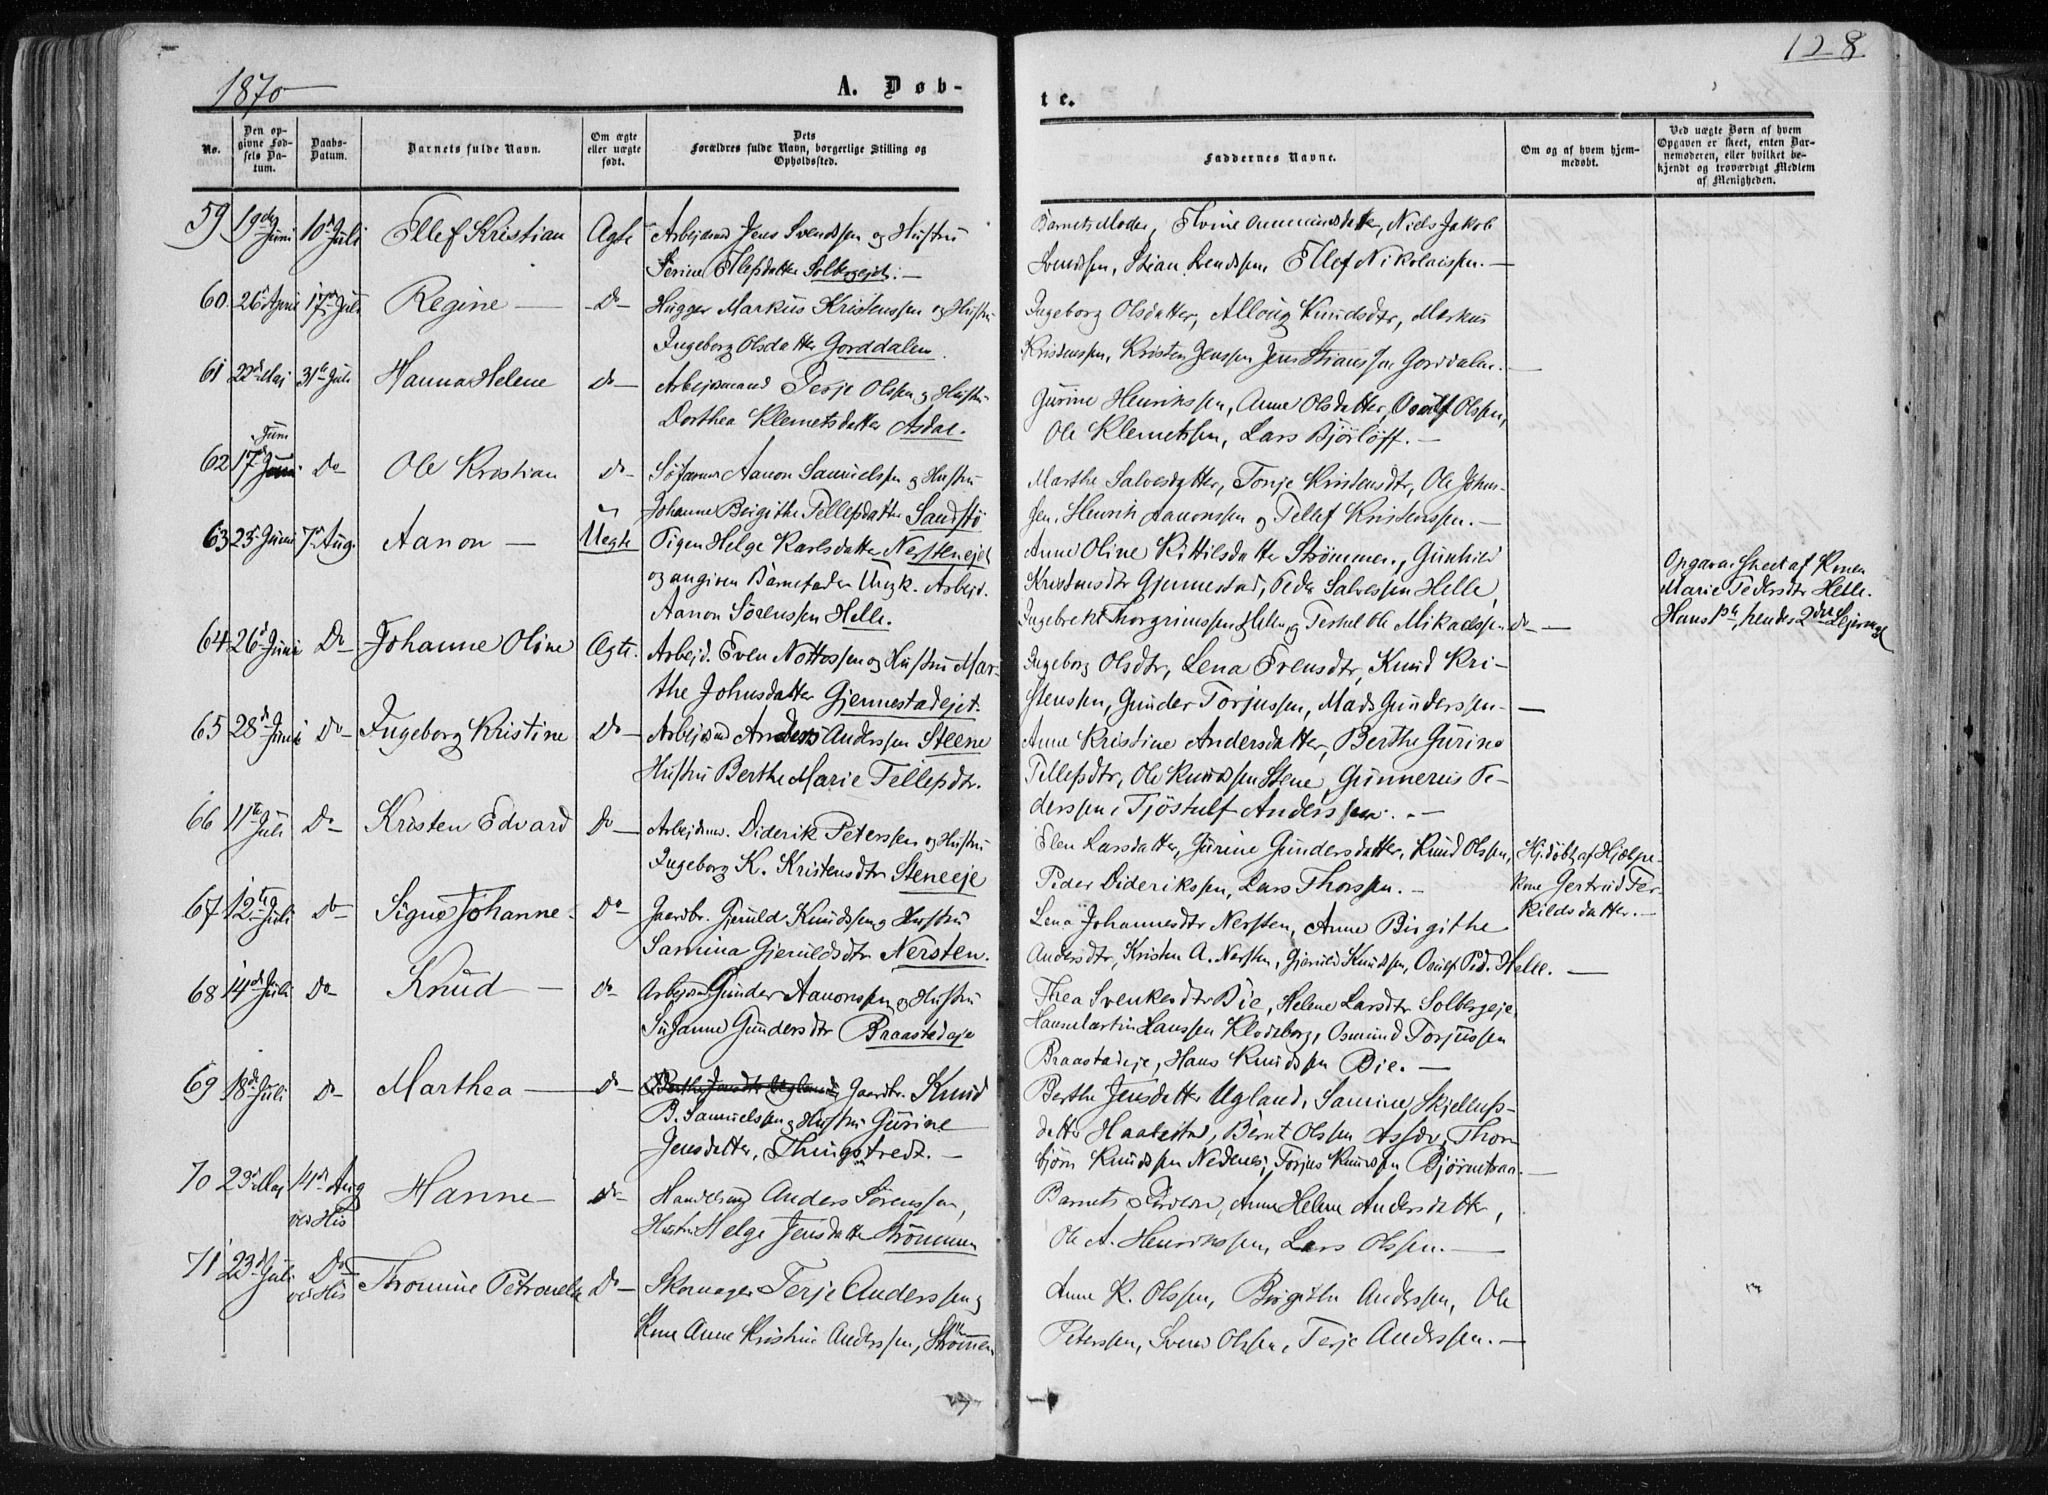 128
1870
A. Døb-
te.
No.
Den op-
givne Fød-
sels Da-
tum.
Daabs-
Datum.
Barnets fulde Navn.
Om ægte
eller uægte
født.
Dets
Forældres fulde Navn, borgerlige Stilling og
Opholdssted.
Faddernes Navne.
Om og af hvem hjem-
medøbt.
Ved uægte Børn af hvem
Opgaven er skeet, enten Bar-
nemoderen, eller hvilket be-
kjendt og troværdigt Medlem
af Menigheden.
59 19de Juni 10de Juli Ellef Kristian Ægte Arbejdsmd Jens Svendssen og Hustru
Serine Ellefsdatter Solbergejet.
Barnets Moder, Elvine Ammundsdatter, Niels Jakob
Svendssen, Stian Svendssen, Ellef Nikolaissen.
60. 26de April 17de Juli Regine Do Hugger Markus Kristenssen og Hustru
Ingeborg Olsdatter Gorddalen.
Ingeborg Olsdatter, Alloug Knudsdtr, Markus
Kristenssen, Kristen Jenssen, Jens Stianssen Gorddalen.
61 22de Maj 31te Juli Hanna Helene Do Arbejdsmand Terje Olssen og Hustru
Dorthea Klemetsdatter Asdal.
Gurine Henrikssen, Anne Olsdatter, Osulf Olssen,
Ole Klemetssen, Lars Bjørløff.
62 17de Juni Do Ole Kristian Do Søfarer Aanon Samuelssen og Hustru
Johanne Birgithe Tellefsdatter Sandstø
Marthe Salvesdatter, Tonje Kristensdtr, Ole Johns-
sen, Henrik Aanonssen og Tellef Kristenssen.
63 23de Juni 7de Aug. Aanon Uegte Pigen Helge Karlsdatter Nerstenejet
og angiven Barnefader Ungk. Arbejd.
Aanon Sørenssen Helle.
Anne Oline Kittilsdatter Strømmen, Gunhild
Kristensdtr Gjennestad, Peder Salvessen Helle,
Ingebrekt Thorgrimssen Helle, og Terkel Ole Mikaelssen Do
Opgaven skeet af Konen
Marie Pedersdtr Helle.
Hans 1ste, hendes 2det Lejermaal
64 26de Juni Do Johanne Oline Ægte. Arbejd. Even Nottossen og Hustru Mar-
the Johnsdatter Gjennestadejet.
Ingeborg Olsdtr, Lena Evensdtr, Knud Kri-
stenssen, Gunder Torjussen, Mads Gunderssen
65 28de Juni Do Ingeborg Kristine Do Arbejdsmd Anders Anderssen Steene
Hustru Berthe Marie Tellefsdtr.
Anne Kristine Andersdatter, Berthe Gurine
Tellefsdtr, Ole Knudssen Stene, Gunnerius Pe-
derssen, Tjøstulf Anderssen.
66 11te Juli Do Kristen Edvard Do Arbejdsm. Diderik Peterssen og Hustru
Ingeborg K. Kristensdtr Steneeje
Elen Larsdatter, Gurine Gundersdatter, Knud Olssen,
Peder Diderikssen, Lars Thorssen.
Hj. døbt af Hjælpe-
kone Gertrud Ter-
kildsdatter.
67 12te Juli Do Signe Johanne Do Gaardbr. Gjeruld Knudssen og Hustru
Samina Gjeruldsdtr Nersten.
Lena Johannesdtr Nersten, Anne Birgithe
Andersdtr, Kristen A. Nersten, Gjeruld Knudssen, Osulf Ped. Helle.
68 14de Juli Do Knud Do Arbejdsmd Gunder Aanonssen og Hustru
Susanne Gundersdtr Braastadeje
Thea Svenkesdtr Bie, Helene Larsdtr Solbergeje,
Hans Martin Hanssen Klodeborg, Osmund Torjussen
Braastadeje, Hans Knudssen Bie.
69 18de Juli Do Marthea Do Berthe Jensdtr Ugland Gaardbr. Knud
B. Samuelssen og Hustru Gurine
Jensdatter, Thingstvedt.
Berthe Jensdatter Ugland, Samine Skjellufs-
datter Haabestad, Bernt Olssen Assev, Thor-
bjørn Knudssen Nedenes, Torjus Knudssen Bjørnetraa.
70 23de Maj 14de Aug ved His Hanne Do Handelsmd Anders Sørenssen,
Hustru Helge Jensdatter Strømmen
Barnets Forældre, Anne Helene Andersdatter,
Ole A. Henrikssen, Lars Olssen.
71 23de Juli Do ved His Thomine Petronella Do Skomager Terje Anderssen og
Kone Anne Kristine Anderssen, Strømmen
Anne K. Olssen, Birgithe Anderssen, Ole
Peterssen, Svend Olssen, Terje Anderssen.